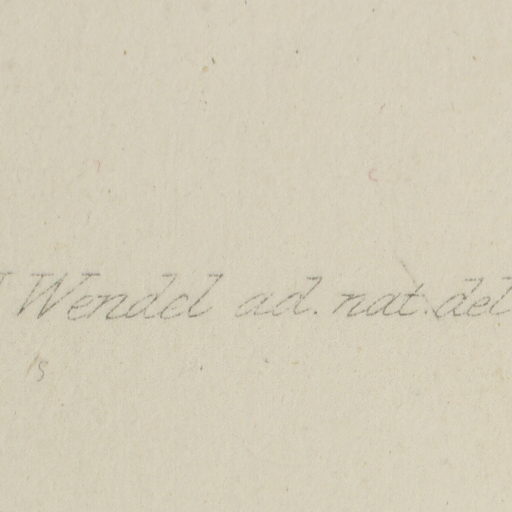 Wendel ad. nat. del